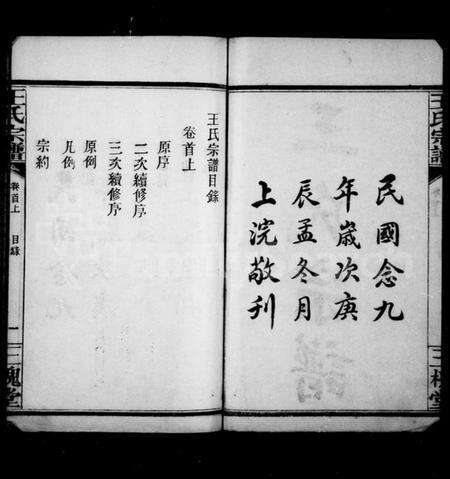 王氏宗譜
三槐堂
民國念九
年歲次庚
辰孟冬月
上浣敬刊
王氏宗譜目錄
卷首上
原序
二次續修序
三次續修序
原例
凡例
宗約
王氏宗譜
卷首上
目錄
一
三槐堂